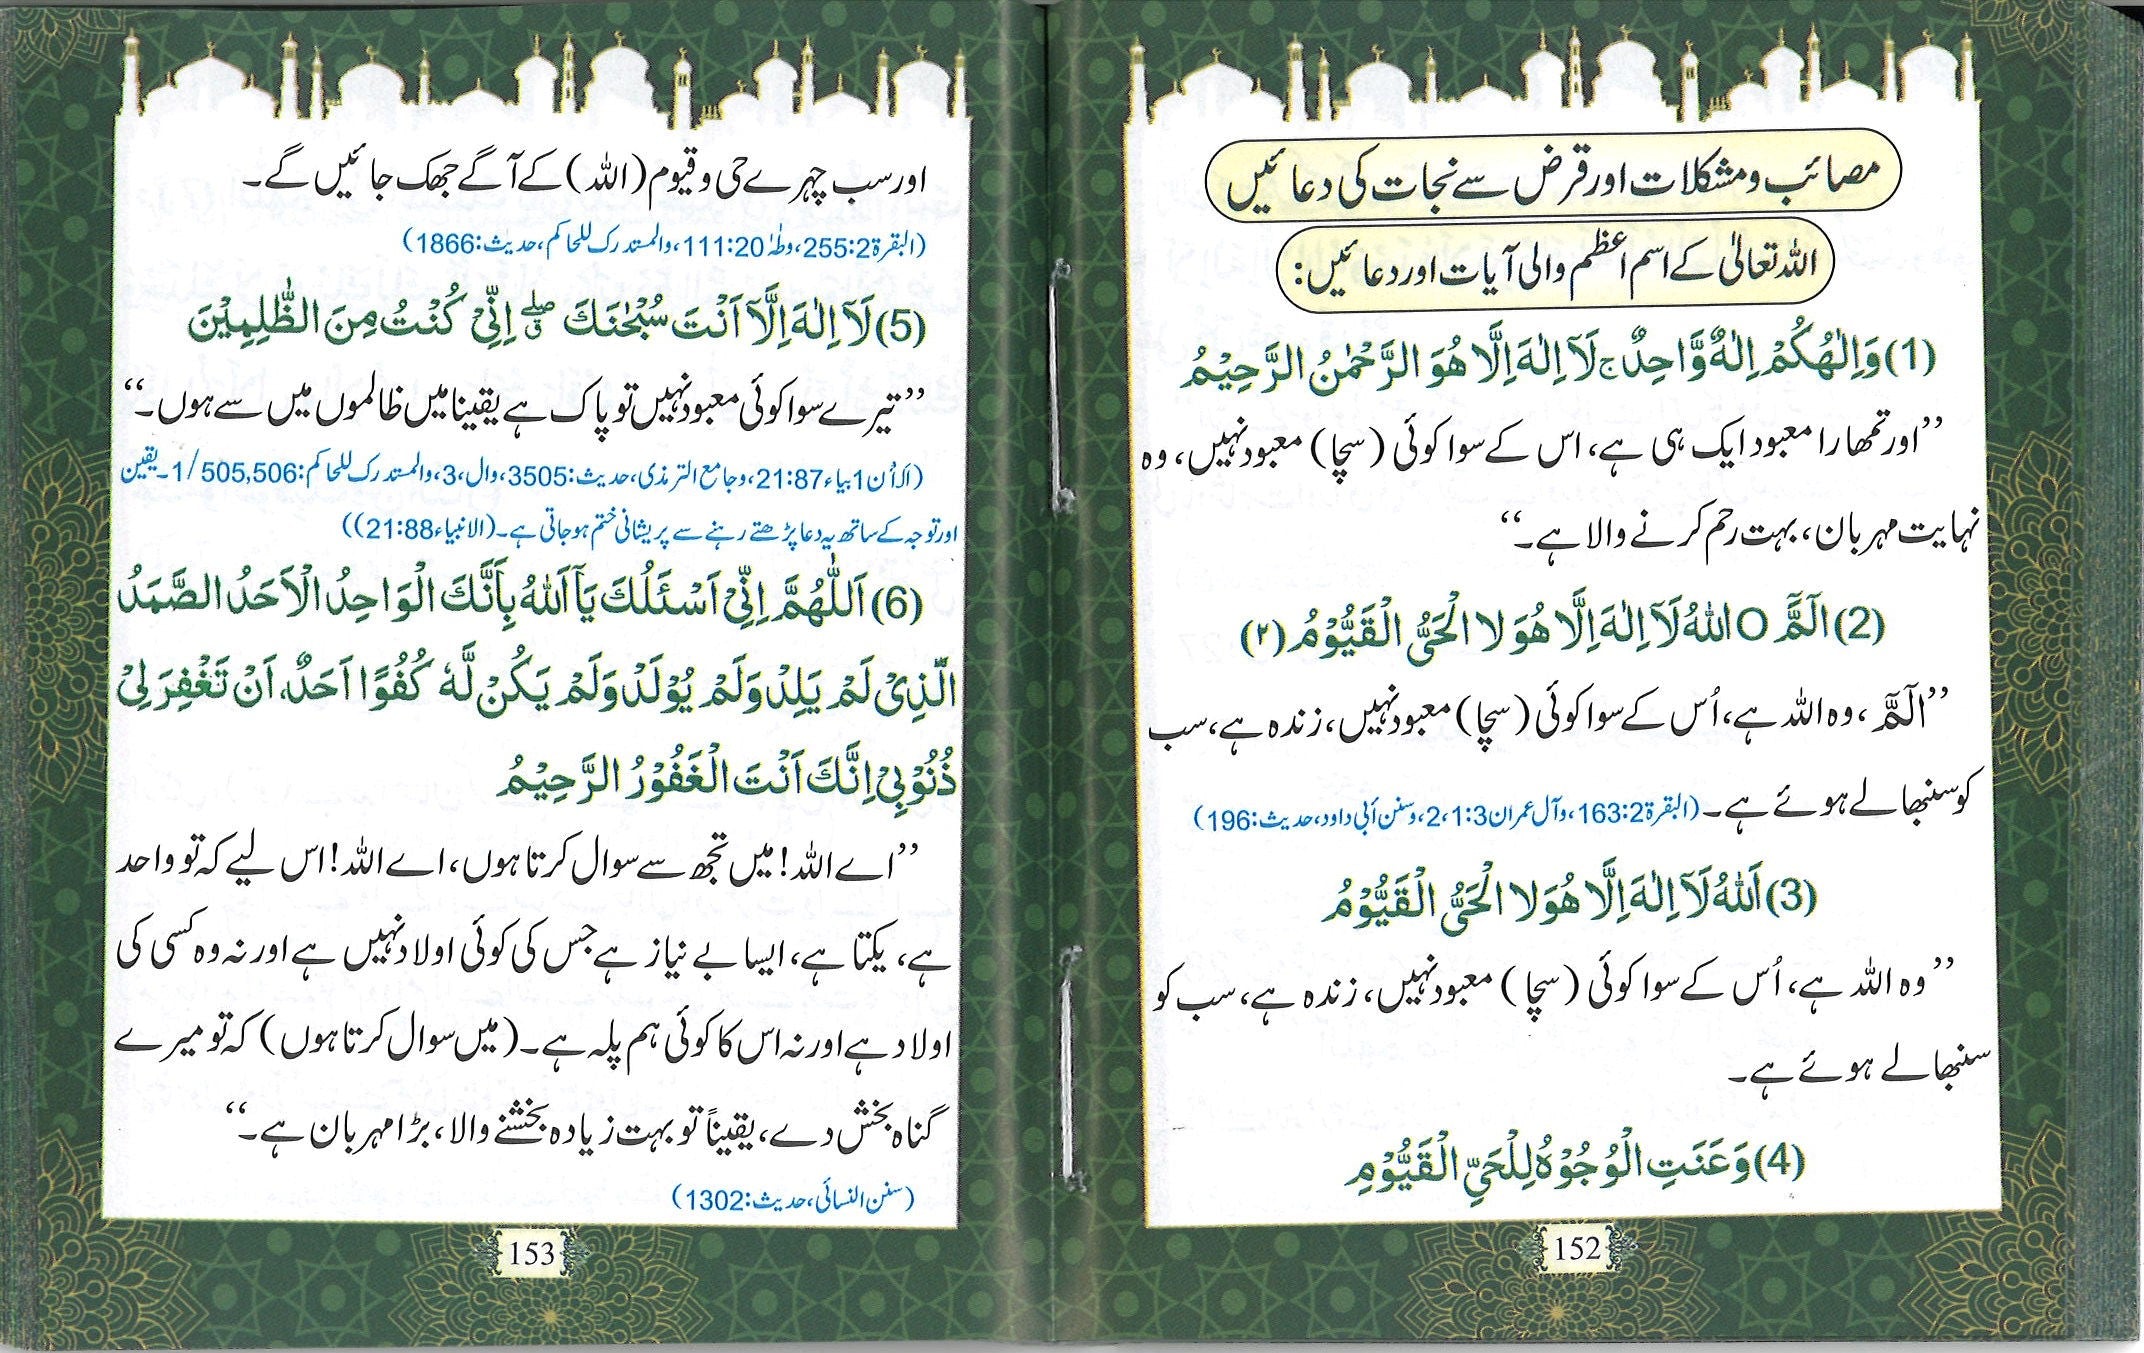 مصائب و مشکلات اور قرض سے نجات کی دعائیں
اللہ تعالیٰ کے اسم اعظم والی آیات اور دعائیں:
(1) وَاِلٰهُكُمْ اِلٰهٌ وَّاحِدٌ ج لَآ اِلٰهَ اِلَّا هُوَ الرَّحْمٰنُ الرَّحِيْمُ
”اور تمھارا معبود ایک ہی ہے، اس کے سوا کوئی (سچا) معبود نہیں، وہ
نہایت مہربان، بہت رحم کرنے والا ہے۔“
(2) الٓمّٓ O اللهُ لَآ اِلٰهَ اِلَّا هُوَ لا الْحَيُّ الْقَيُّوْمُ (٢)
”الٓمّٓ، وہ اللہ ہے، اُس کے سوا کوئی (سچا) معبود نہیں، زندہ ہے، سب
کو سنبھالے ہوئے ہے۔ (البقرۃ 163:2، وآل عمران 2،1:3، وسنن أبی داود، حدیث:196)
(3) اَللهُ لَآ اِلٰهَ اِلَّا هُوَ لا الْحَيُّ الْقَيُّوْمُ
”وہ اللہ ہے، اُس کے سوا کوئی (سچا) معبود نہیں، زندہ ہے، سب کو
سنبھالے ہوئے ہے۔
(4) وَعَنَتِ الْوُجُوْهُ لِلْحَيِّ الْقَيُّوْمِ
152
اور سب چہرے حی و قیوم (اللہ) کے آگے جھک جائیں گے۔
(البقرۃ 255:2، وطٰہٰ 111:20، والمستدرک للحاکم، حدیث:1866)
(5) لَآ اِلٰهَ اِلَّآ اَنْتَ سُبْحٰنَكَ ۖق اِنِّيْ كُنْتُ مِنَ الظّٰلِمِيْنَ
”تیرے سوا کوئی معبود نہیں تو پاک ہے یقینا میں ظالموں میں سے ہوں۔“
21:87، وجامع الترمذی، حدیث:3505، وال، 3، والمستدرک للحاکم:505,506/1۔ یقین
اور توجہ کے ساتھ یہ دعا پڑھتے رہنے سے پریشانی ختم ہو جاتی ہے۔ (الانبیاء 21:88))
(6) اَللّٰهُمَّ اِنِّيْ اَسْئَلُكَ يَآ اَللهُ بِاَنَّكَ الْوَاحِدُ الْاَحَدُ الصَّمَدُ
الَّذِيْ لَمْ يَلِدْ وَلَمْ يُوْلَدْ وَلَمْ يَكُنْ لَّهٗ كُفُوًا اَحَدٌ، اَنْ تَغْفِرَ لِيْ
ذُنُوْبِيْ اِنَّكَ اَنْتَ الْغَفُوْرُ الرَّحِيْمُ
”اے اللہ! میں تجھ سے سوال کرتا ہوں، اے اللہ! اس لیے کہ تو واحد
ہے، یکتا ہے، ایسا بے نیاز ہے جس کی کوئی اولاد نہیں ہے اور نہ وہ کسی کی
اولاد ہے اور نہ اس کا کوئی ہم پلہ ہے۔ (میں سوال کرتا ہوں) کہ تو میرے
گناہ بخش دے، یقیناً تو بہت زیادہ بخشنے والا، بڑا مہربان ہے۔“
(سنن النسائی، حدیث:1302)
153